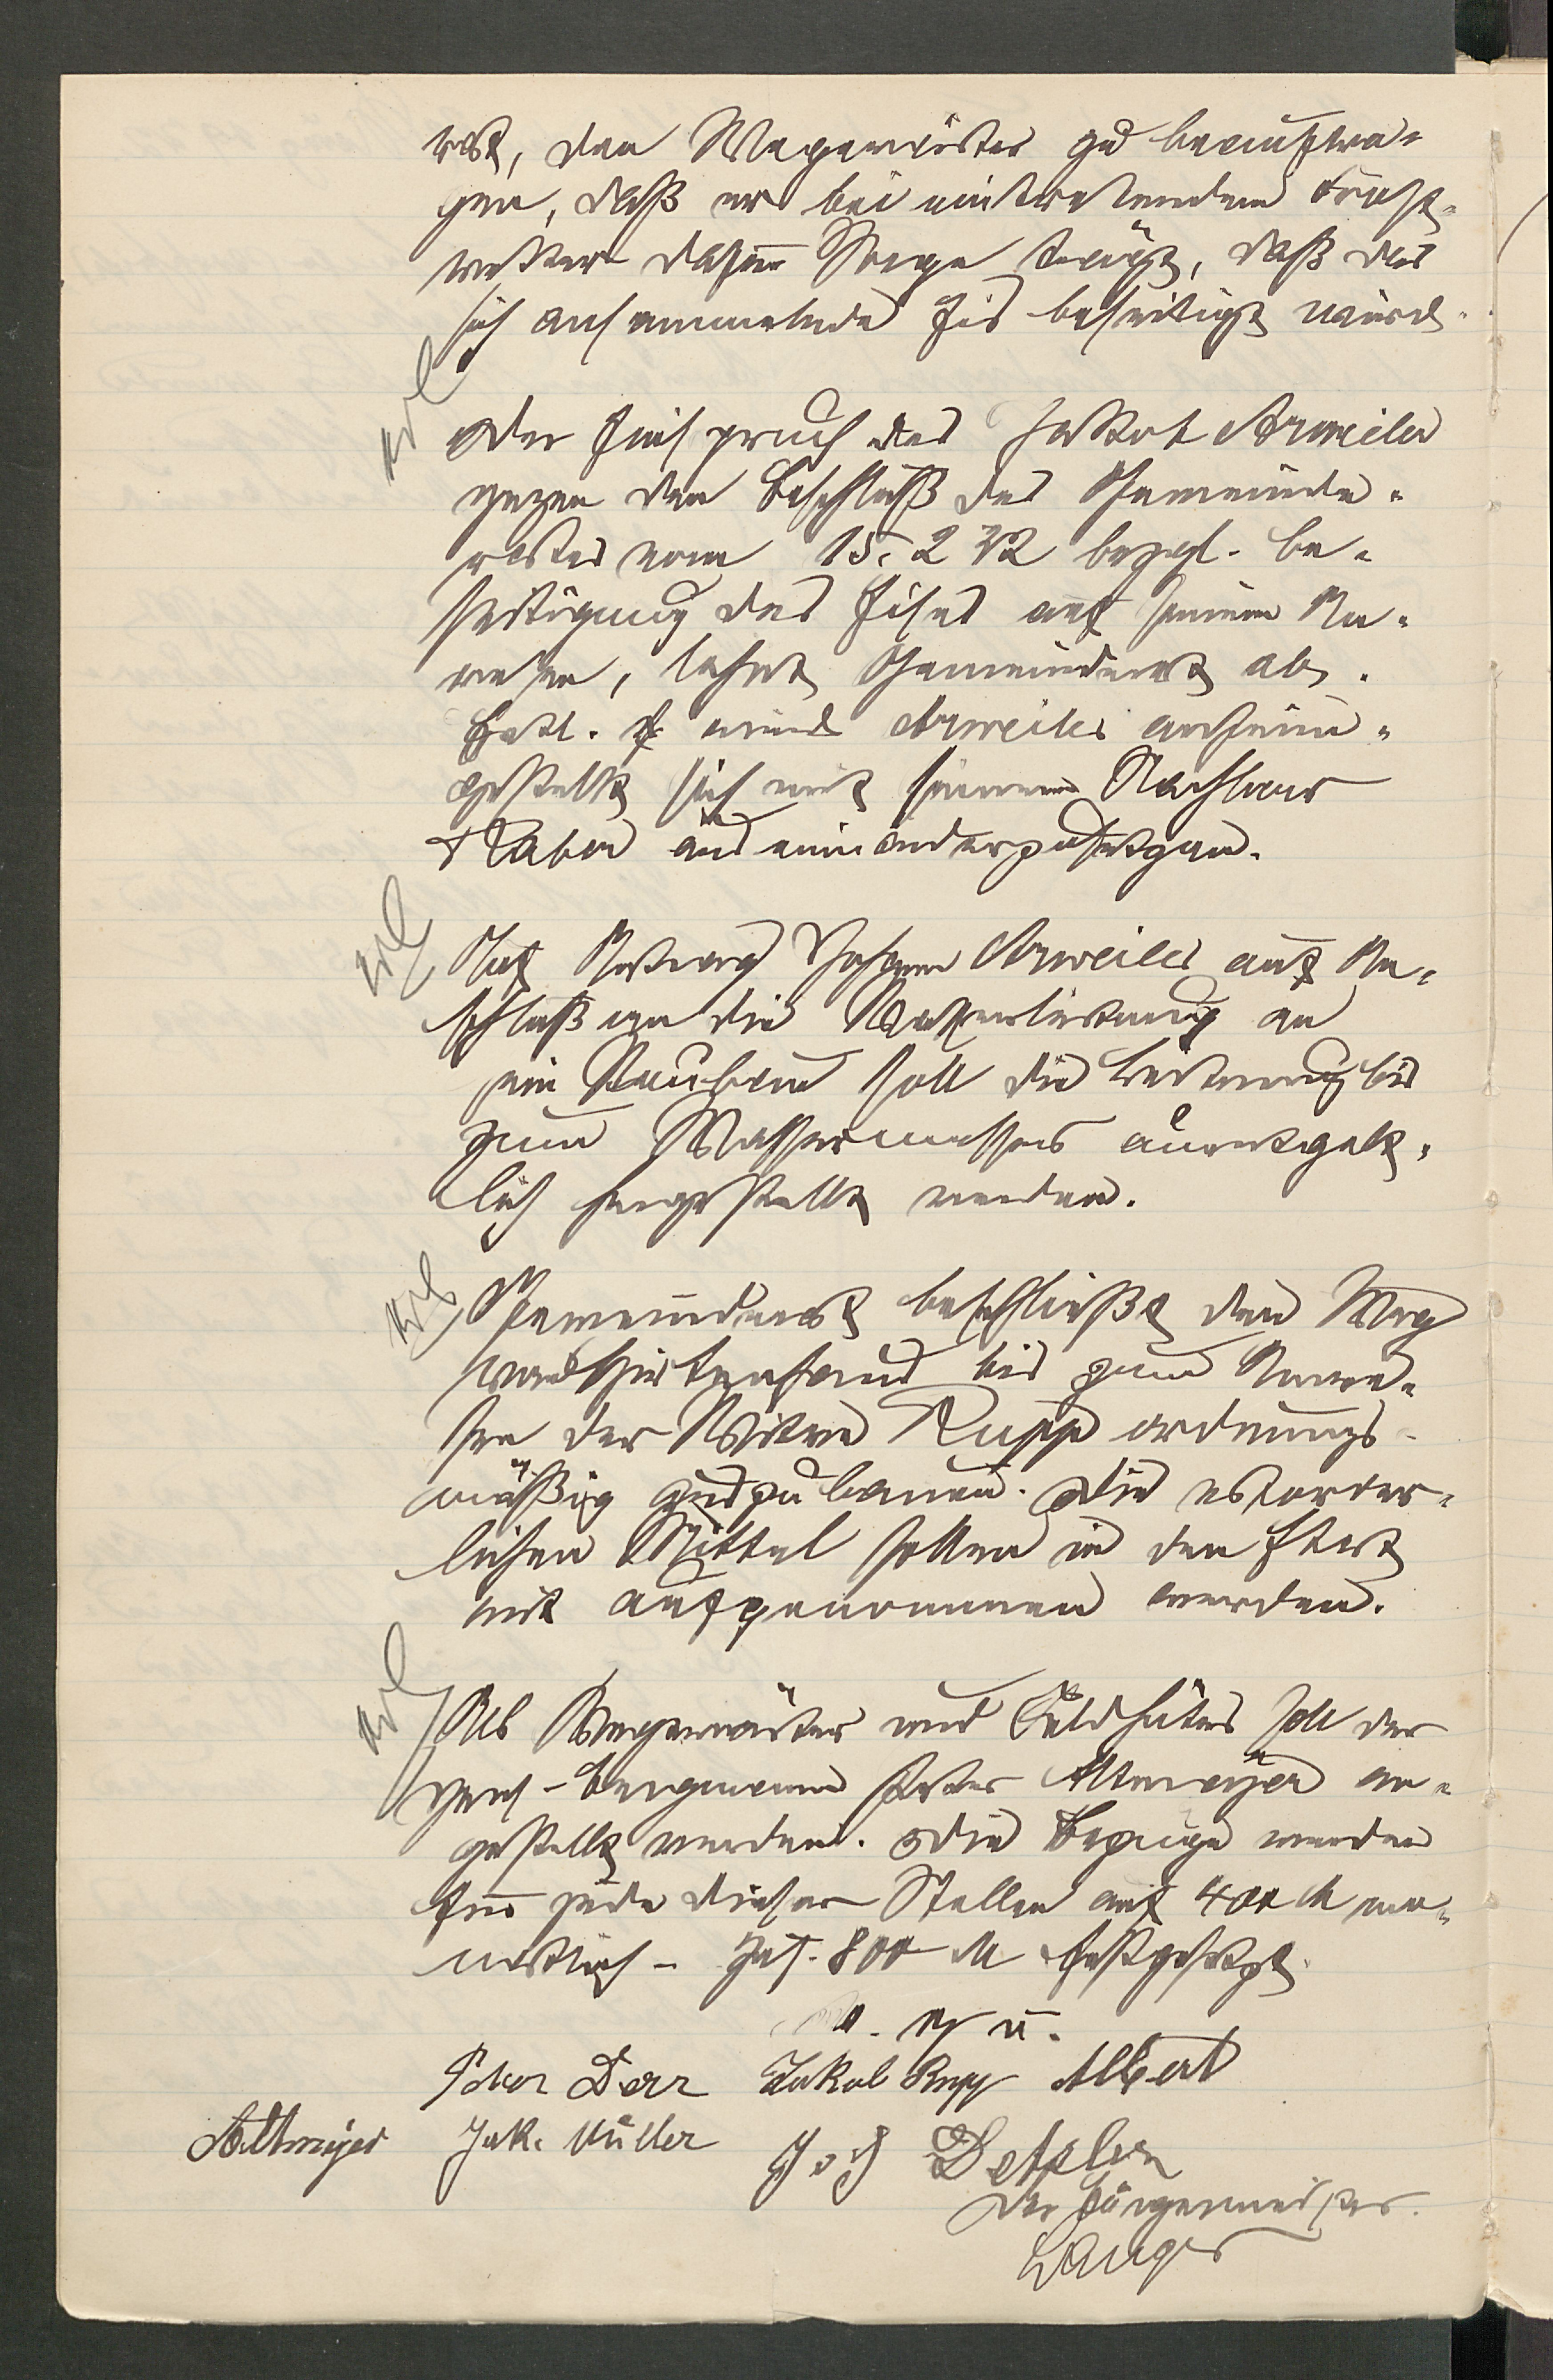 rat, den Wegewärter zu beauftra-
gen, daß er bei eintretendem Frost-
wetter dafür Sorge trägt, daß das
sich ansammelnde Eis beseitigt wird.
erl
Der Einspruch des Jakob Arweiler
gegen den Beschluß des Gemeinde-
rates vom 15. 2 22 bezgl. Be-
seitigung des Eises auf seinem An-
wesen, lehnt Gemeinderat ab.
Evtl. wird Arweiler anheim-
gestellt sich mit seinem Nachbar
Klaber auseinanderzusetzen.
erl
Auf Antrag Johann Arweiler auf An-
schluß an die Wasserleitung an
sein Neubau soll die Leitung bis
zum Wassermesser unentgelt-
lich hergestellt werden.
erl
Gemeinderat beschließt den Weg
vom Hirtenhaus bis zum Anwe-
sen der Witwe Rupp ordnungs-
mäßig auszubauen. Die erforder-
lichen Mittel sollen in den Etat
mit aufgenommen werden.
erl
Als Wegewärter und Feldhüter soll der
Pens-Bergmann Peter Altmeyer an-
gestellt werden. Die Bezüge werden
für jede dieser Stellen auf 400 M mo-
natlich - zus. 800 M festgesetzt.
v. g u.
Peter Derr Jakob Rupp Albert
Altmeyer Jak. Müller Joh Detzler
Der Bürgermeister.
Langer